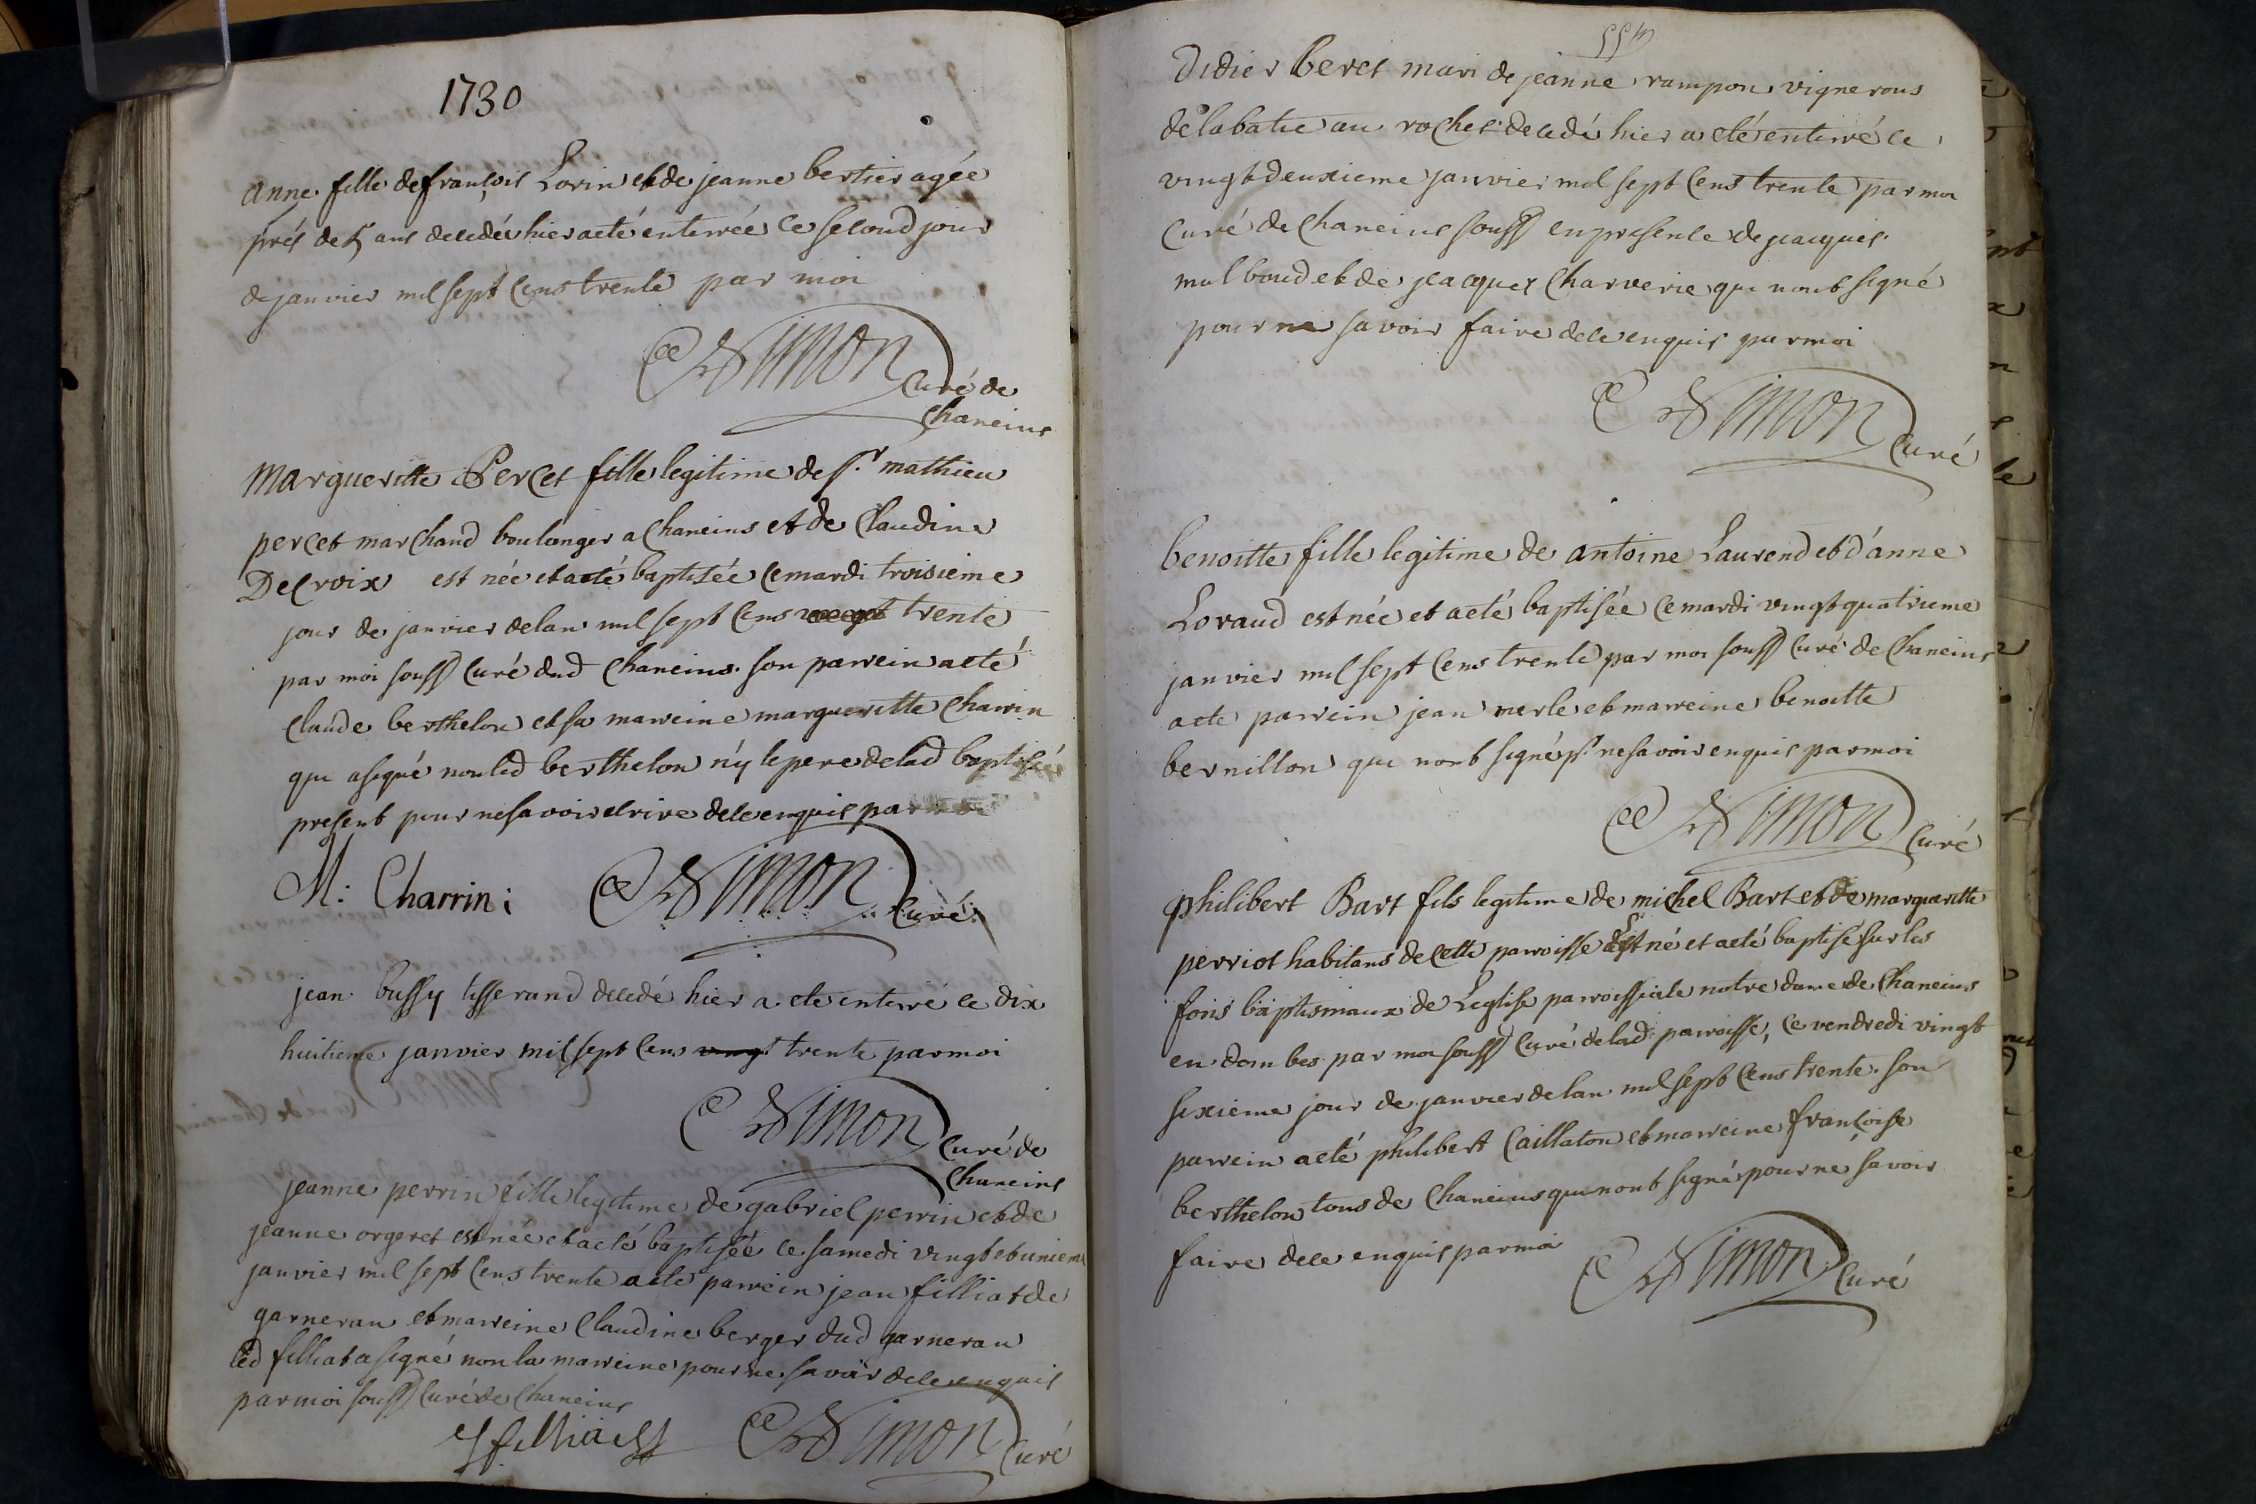 1730
anne fille de françois Lorin et de jeanne bertier agée
prés de 5 ans decedée hier a eté enterrée ce second jour
de janvier mil sept cens trente par moi
Simon curé de
Chaneins
Margueritte Percet fille legitime de sr. mathieu
percet marchand boulanger a Chaneins et de Claudine
Decroix est née et a eté baptisée ce mardi troisieme
jour de janvier de lan mil sept cens trente
par moi souss curé dud Chaneins. son parrein a eté
Claude berthelon et sa marreine margueritte Charrin
qui a signé non led berthelon n'y le pere de lad baptisée
present pour ne savoir ecrire de ce enquis par moi
M: Charrin: Simon curé
jean bussy tisserand decedé hier a eté enterré ce dix
huitieme janvier mil sept cens vingt trente par moi
Simon curé de
Chaneins
jeanne perrin fille legitime de gabriel perrin et de
jeanne orgeret est née et a eté baptisée ce samedi vingt et unieme
janvier mil sept cens trente a eté parrein jean filliat de
garneran et marreine Claudine berger dud garneran
led filliat a signé non la marreine pour ne savoir de ce enquis
par moi souss curé de Chaneins
J filliat Simon curé
Didier beret mari de jeanne rampon vignerons
de labatie au rocher decedé hier a eté enterré ce
vingt deuxieme janvier mil sept cens trente par moi
curé de Chaneins souss en presence de jacques
mulboud et de jeacques Charverie qui nont signé
pour ne savoir faire de ce enquis par moi
Simon curé
benoitte fille legitime de antoine Laurend et d'anne
Loraud est née et a eté baptisée ce mardi vingt quatrieme
janvier mil sept cens trente par moi souss curé de Chaneins
a eté parrein jean merle et marreine benoitte
bernillon qui nont signé pr. ne savoir enquis par moi
Simon curé
philibert Bart fils legitime de michel Bart et de margueritte
perriot habitans de cette parroisse Est né et a eté baptisé sur les
fons baptismaux de Leglise parroissiale notre dame de Chaneins
en dombes par moi souss curé de lad parroisse, ce vendredi vingt
sixieme jour de janvier de lan mil sept cens trente. son
parrein a eté philibert Caillaton et marreine françoise
berthelon tous de Chaneins qui nont signés pour ne savoir
faire de ce enquis par moi
Simon curé